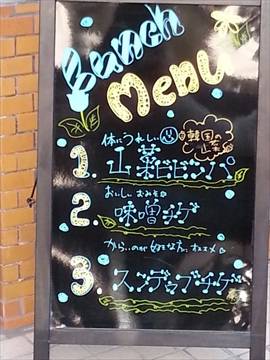 Lunch
Menu
体にうれしい
韓国の
山菜
1. 山菜ビビンバ
おいしい おみそ
2. 味噌チゲ
からいのが 好きな方に オススメ
3. スンデゥブチゲ